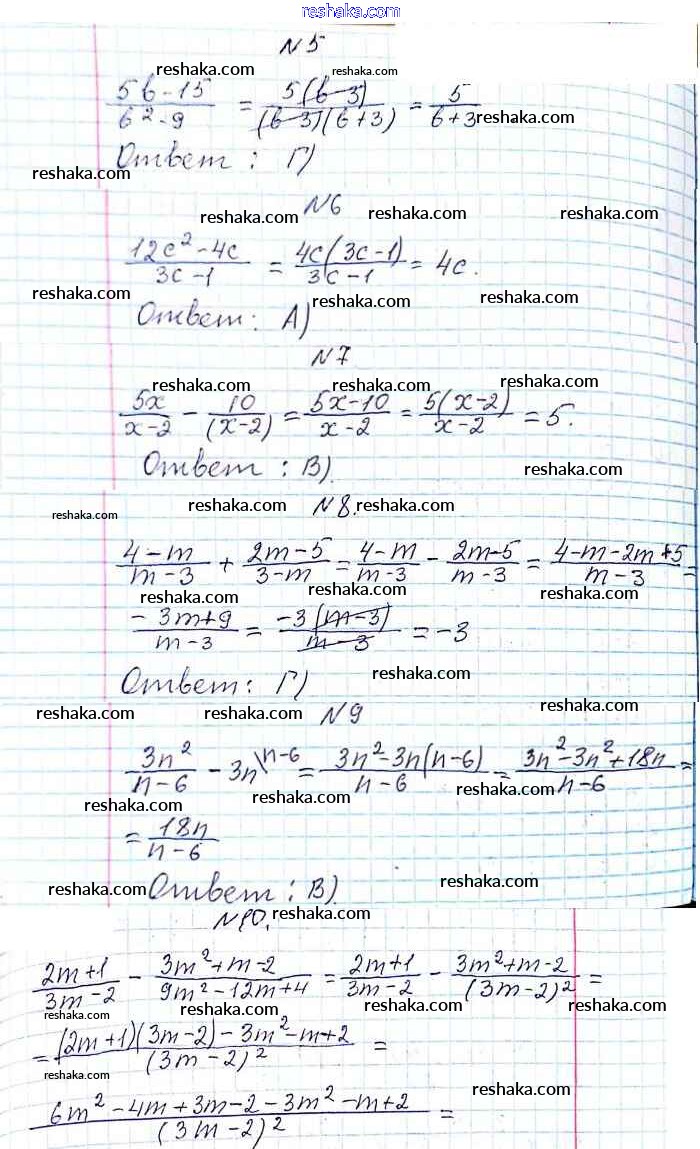 reshaka.com
N 5
reshaka.com reshaka.com
(5b-15)/(b²-9) = 5(b-3)/((b-3)(b+3)) = 5/(b+3) reshaka.com
Ответ: Г)
reshaka.com
N6
reshaka.com reshaka.com reshaka.com
(12c²-4c)/(3c-1) = 4c(3c-1)/(3c-1) = 4c.
reshaka.com reshaka.com reshaka.com
Ответ: А)
N 7
reshaka.com reshaka.com reshaka.com
5x/(x-2) - 10/(x-2) = (5x-10)/(x-2) = 5(x-2)/(x-2) = 5.
Ответ: В)
reshaka.com
reshaka.com reshaka.com
N 8.
reshaka.com reshaka.com
(4-m)/(m-3) + (2m-5)/(3-m) = (4-m)/(m-3) - (2m-5)/(m-3) = (4-m-2m+5)/(m-3) =
reshaka.com reshaka.com reshaka.com
(-3m+9)/(m-3) = -3(m-3)/(m-3) = -3
reshaka.com
Ответ: Г)
reshaka.com reshaka.com reshaka.com
N 9
3n²/(n-6) - 3n\n-6 = (3n²-3n(n-6))/(n-6) = (3n²-3n²+18n)/(n-6) =
reshaka.com reshaka.com reshaka.com
= 18n/(n-6)
reshaka.com reshaka.com reshaka.com
Ответ: В)
N10. reshaka.com
(2m+1)/(3m-2) - (3m²+m-2)/(9m²-12m+4) = (2m+1)/(3m-2) - (3m²+m-2)/(3m-2)² =
reshaka.com reshaka.com reshaka.com reshaka.com
= ((2m+1)(3m-2)-3m²-m+2)/(3m-2)² =
reshaka.com reshaka.com
(6m²-4m+3m-2-3m²-m+2)/(3m-2)² =